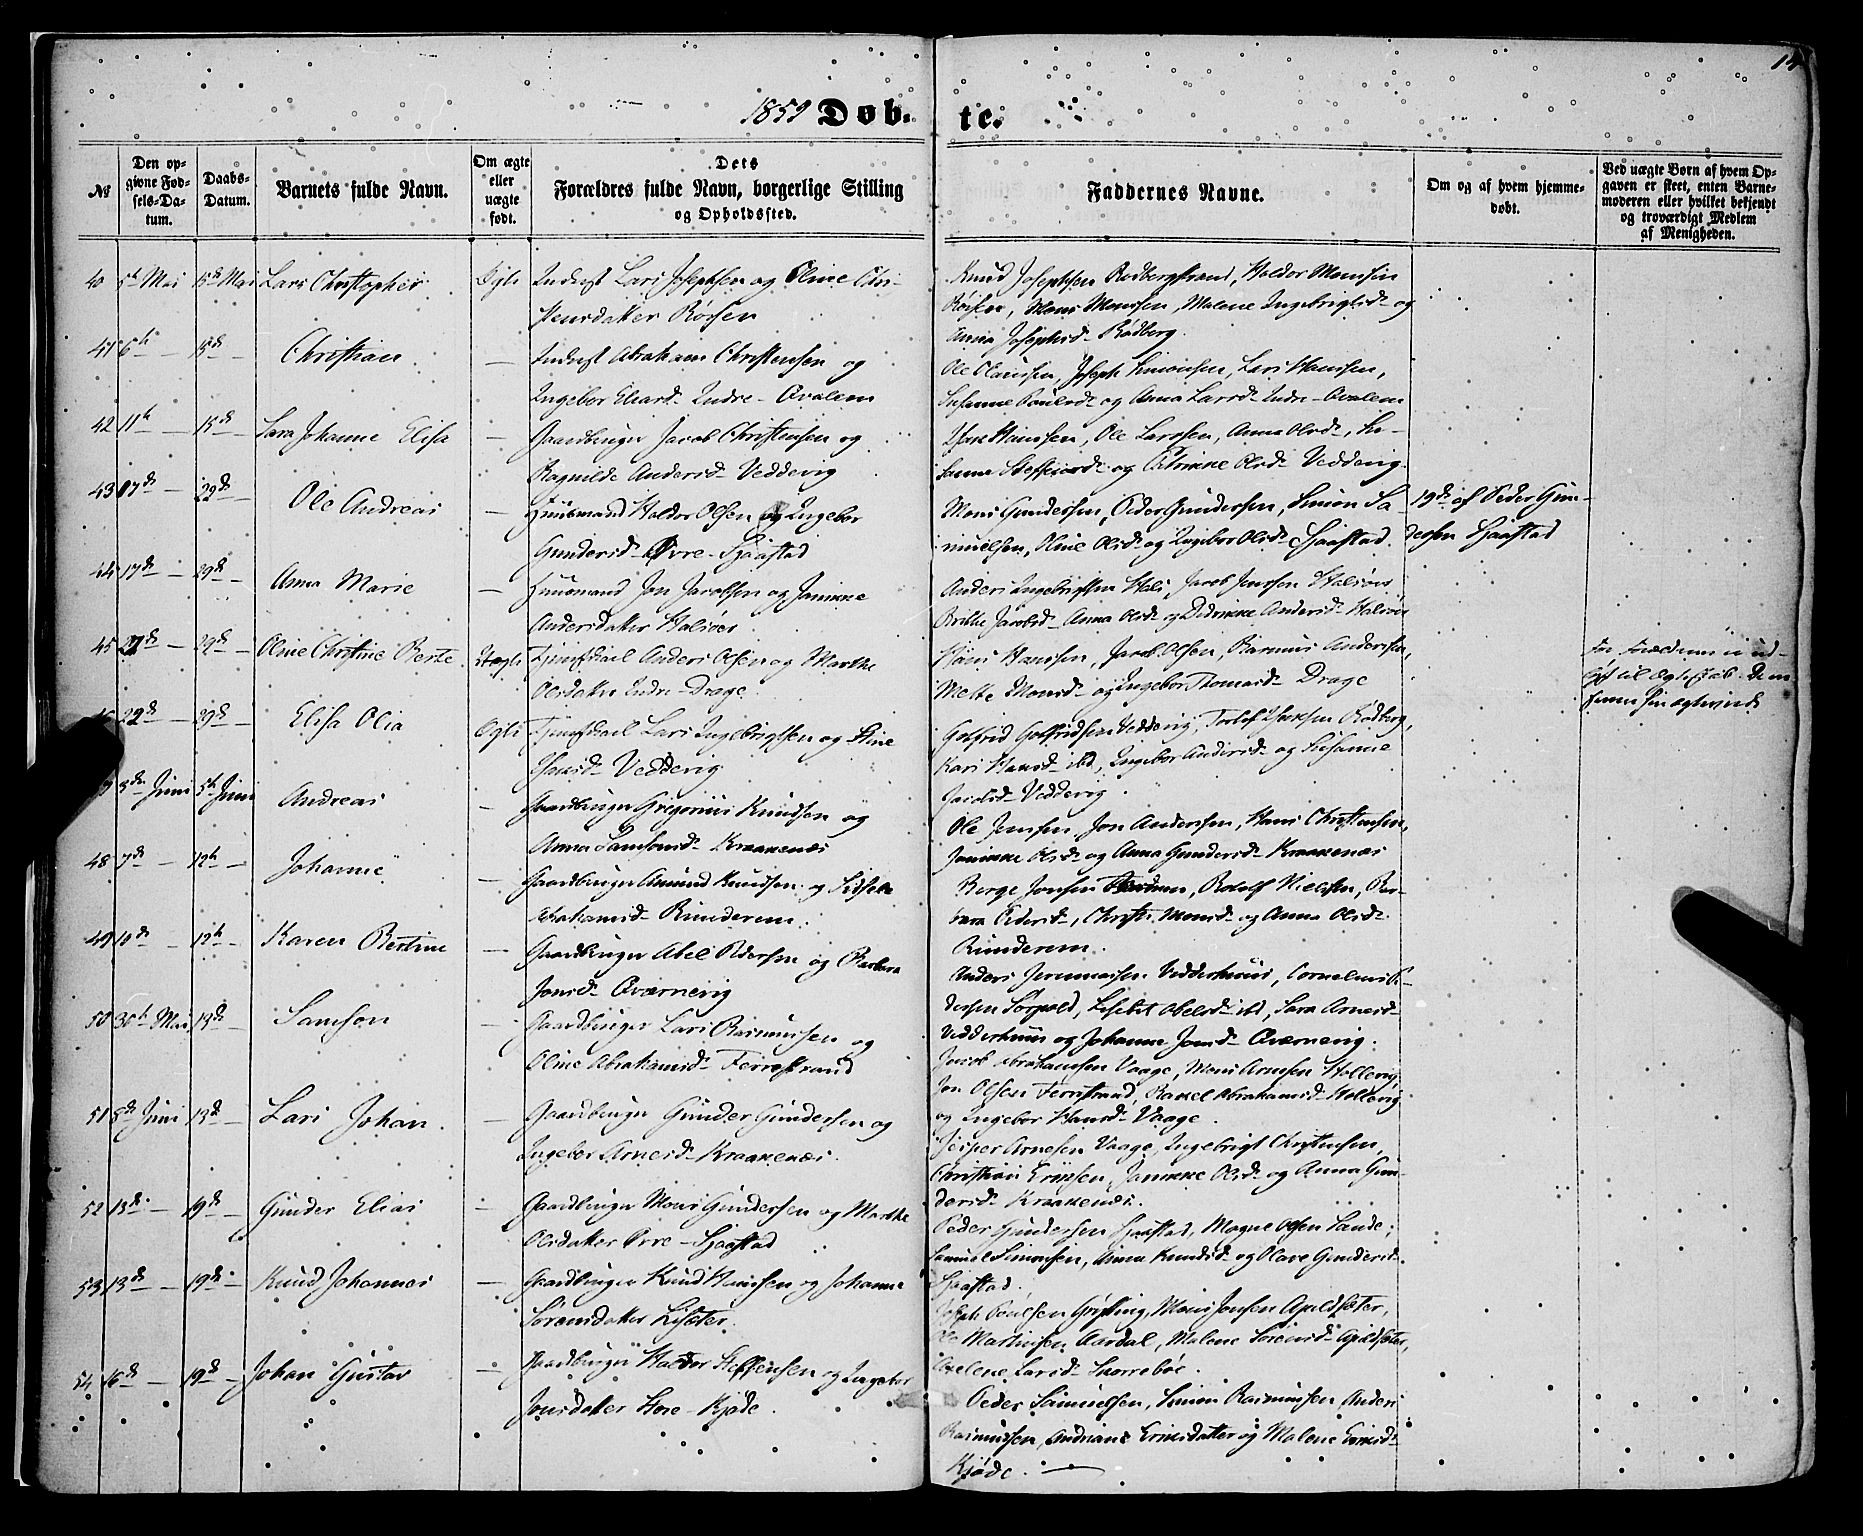 14
1859 Døb- te.
No
Den op-
givne Fød-
sels-Da-
tum.
Daabs-
Datum.
Barnets fulde Navn.
Om ægte
eller
uægte
født.
Dets
Forældres fulde Navn, borgerlige Stilling
og Opholdssted.
Faddernes Navne.
Om og af hvem hjemme-
døbt.
Ved uægte Børn af hvem Op-
gaven er skeet, enten Barne-
moderen eller hvilket bekjendt
og troværdigt Medlem
af Menigheden.
40 5th Mai 15de Mai Lars Christopher Ægte Inderst Lars Josephsen og Oline Chri-
stensdatter Röisen
Knud Josephsen Rödbergstrand, Haldor Monsen
Röisen, Mons Monssen, Malene Ingebrigtsd- og
Anna Josephsd- Rödberg.
41 6th - 15de - Christian - Inderst Abraham Christensen og
Ingebor Eliasd- Indre-Qvalem
Ole Olaussen, Joseph Simonsen, Lars Hanssen,
Susanne Poulsd- og Anna Larsd- Indre-Qvalem
42 11th - 15de - Sara Johanne Elisa - Gaardbruger Jacob Christensen og
Ragnilde Andersd- Veddevig
Isac Hanssen, Ole Larssen, Anna Olsd-, Su-
sanna Steffensd- og Olsd- Veddevig.
43 17de - 29de - Ole Andreas - Huusmand Haldor Olsen og Ingebor
Gundersd- Övre-Sjaastad
Mons Gundersen, Peder Gundersen, Simon Sa-
muelsen, Oline Olsd- og Ingebor Olsd- Sjaastad.
19de af Peder Gun-
dersen Sjaastad
44 17de - 29de - Anna Marie - Huusmand Jon Jacobsen og Janikke
Andersdatter Halsöer
Anders Ingebrigtsen Hals, Jacob Jenssen Halsöer,
Brithe Jacobsd- Anna Olsd- og Didrikke Andersd- Halsöer
45 22de - 29de - Oline Christine Berte Uægte Tjenestkarl Anders Olsen og Marthe
Olsdatter Indre-Drage
Hans Hanssen, Jacob Olsen, Rasmus Anderssen,
Mette Monsd- og Ingebor Thomasd- Drage
For Forældrene er ud-
lyst til Ægteskab.
22de - 29de - Elisa Olia Ægte Tjenestkarl Lars Ingebrigtsen og Stine
Hansd- Veddevig
Golfrid Golfridsen Veddevig, Torlof Isacsen Rödberg,
Kari Hansd- ibd, Ingebor Andersd- og Susanne
Jacobsd- Veddevig
3de Juni 5th Juni Andreas - Gaardbruger Gregorius Knudsen og
Anna Samsonsd- Kraakenæs
Ole Jenssen, Jon Andersen, Hans Christensen,
Janikke Olsd- og Anna Gundersd- Kraakenæs
48 7de - 12th - Johanne - Gaardbruger Amund Knudsen og Sidsele
Abrahamsd- Runderem
Berge Jonsen, Rololf Nielssen, Bar-
bara Pedersd-, Christi Monsd- og Anna Olsd-
Runderem.
49 10de - 12th - Karen Bertine - Gaardbruger Abel Pedersen og Barbara
Jonsd- Qværnevig
Anders Jeremiassen Vedderhuus, Cornelius Pe-
dersen Sörpold, Lisebet Abelsd- ibd, Sara Arnesd-
Vedderhuus og Johanne Jonsd- Qværnevig.
50 30th Mai 13de - Samson - Gaardbruger Lars Rasmussen og
Oline Abrahamsd- Ferrstrand
Jacob Abrahamsen Vaage, Mons Arnesen Hollevig,
Jon Olsen Ferrstrand, Rakel Abrahamsd- Hollevig
og Ingebor Hansd- Vaage.
51 8de Juni 13de - Lars Johan. - Gaardbruger Gunder Gundersen og
Ingebor Arnesd- Kraakenæs.
Jesper Arnesen Vaage, Ingebrigt Christensen,
Christian Eriksen, Janikke Olsd- og Anna Gun-
dersd- Kraakenæs.
52 13de - 19de - Gunder Elias - Gaardbruger Mons Gundersen og Marthe
Olsdatter Övre-Sjaastad
Peder Gundersen Sjaastad, Magne Olsen Sande,
Samuel Simonsen, Anna Knudsd- og Olave Gundersd-
Sjaastad.
53 13de - 19de - Knud Johannes - Gaardbruger Knud Hanssen og Johanne
Sörensdatter Lisæter.
Joseph Poulsen Grytting, Mons Jonsen Apeldsæter,
Ole Martinsen Aardal, Malene Sörensd- Apeldsæter,
Axelene Larsd- Snorreböe.
54 16de - 19de - Johan Gustav - Gaardbruger Haldor Steffensen og Ingebor
Jonsdatter Store-Kjöde.
Peder Samuelsen, Simon Rasmussen, Anders
Rasmussen, Andriane Eriksdatter og Malene Eriksd-
Kjöde.